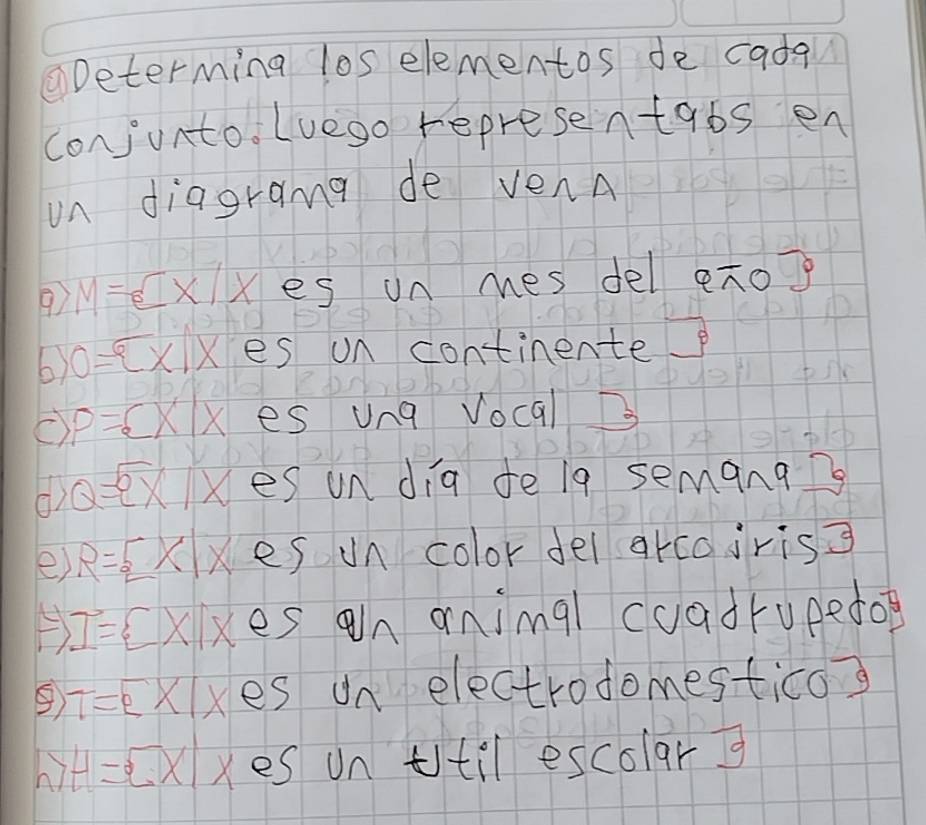 a Determina los elementos de cada
conjunto. Luego representabs en
un diagrama de venn
a) M={X/X es un mes del año}
b) O={X|X es un continente}
c) P={X|X es una vocal}
d) Q={X/X es un día de la semana}
e) R={X|X es un color del arcoiris}
F) I={X|X es un animal cuadrupedo}
g) T={X|X es un electrodomestico}
h) H={X|X es un util escolar}